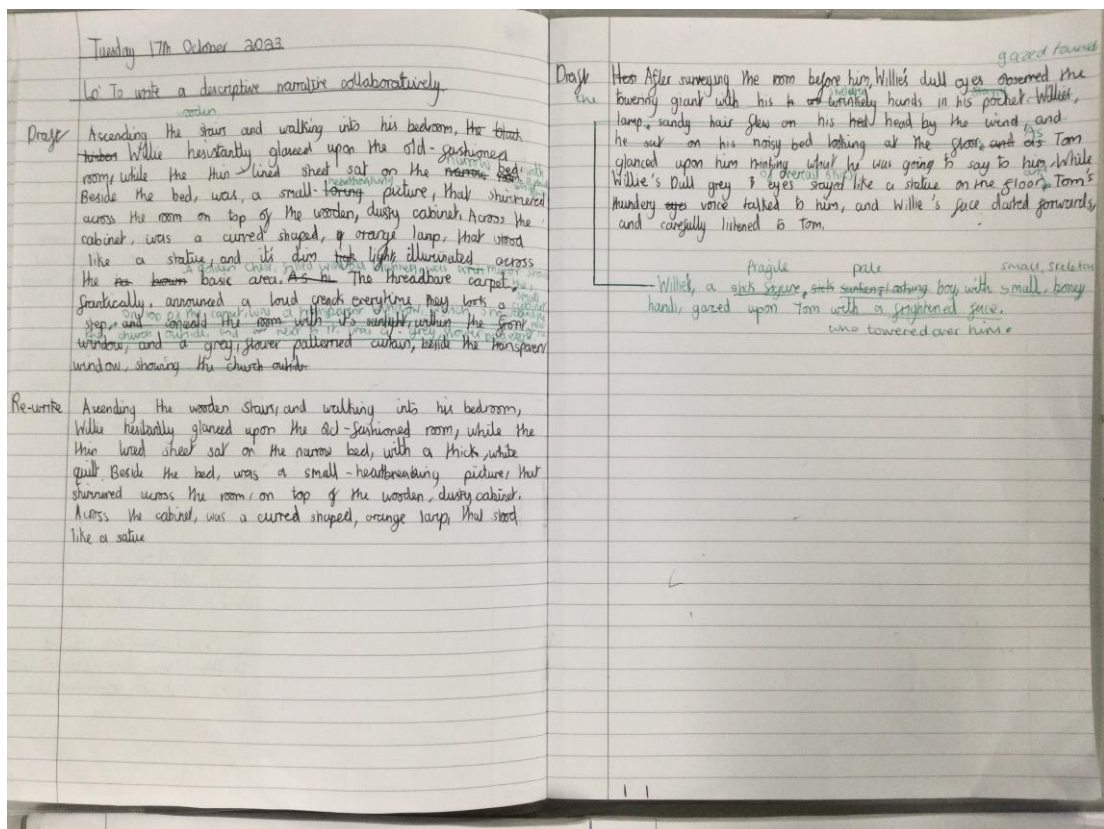 Tuesday 17th October 2023
Lo: To write a descriptive narrative collaboratively.
wooden
Draft Ascending the stairs and walking into his bedroom, the black
Willie hesistantly glanced upon the old-fashioned
narrow with
room, while the thin lined sheet sat on the narrow bed.
heartbreaking
Beside the bed, was, a small- picture, that shimmered
across the room on top of the wooden, dusty cabinet. Across the
cabinet, was a curred shaped, orange lamp, that stood
like a statue, and it's dim light illuminated across
A golden chest, filled with
the brown basic area. As h The threadbare carpet,
frantically, announced a loud creack everytime they took a
On top of the carpet, was a transparent window, which
step, and conceald the room with it's sunlight, within the front
church outside, and next to it, was a grey flower
window, and a grey, flower patterned curtain, beside the transparen
window, showing the church outside
Re-write Ascending the wooden stairs, and walking into his bedroom,
Willie hesitantly glanced upon the old-fashioned room, while the
thin lined sheet sat on the narrow bed, with a thick, white
quilt. Beside the bed, was a small-heartbreaking picture, that
shimmered across the room, on top of the wooden, dusty cabinet.
Across the cabinet, was a curred shaped, orange lamp, that stood
like a satue
gazed toward
Draft After surveying the room before him, Willie's dull eyes observed the
the towering giant with his wrinkely hands in his pocket. Willies,
lamp, sandy hair flew on his hed head by the wind, and
As
he sat on his noisy bed looking at the floor, and as Tom
glanced upon him thinking what he was going to say to him. While
and
Willie's Dull grey eyes stayed like a statue on the floor, Tom's
thundery eyes voice talked to him, and Willie's face darted forwards,
and carefully listened to Tom.
fragile pale small, skeletal
Willie, a sick figure, sick sunken-looking boy, with small, boney
hands, gazed upon Tom with a frightened face.
who towered over him.